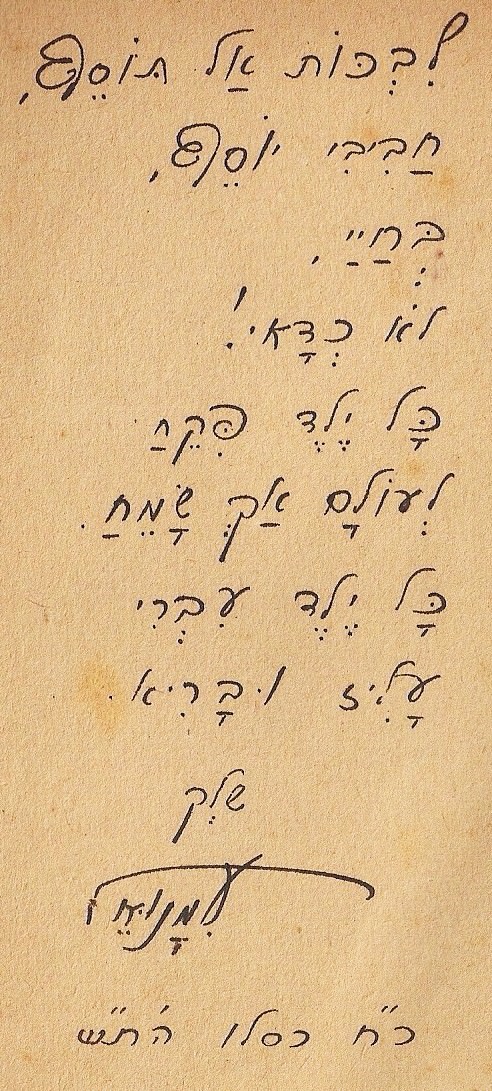 לִבְכּוֹת אַל תּוֹסֵף,
חֲבִיבִי יוֹסֵף,
בְּחַיַּי,
לֹא כְּדָאי!
כָּל יֶלֶד פִּקֵחַ
לְעוֹלָם אַךְ שָׂמֵחַ.
כָּל יֶלֶד עִבְרִי
עָלִיז וּבָרִיא.
שלך
עִמָּנוּאֵל
כ״ח כסלו ה׳ת״ש